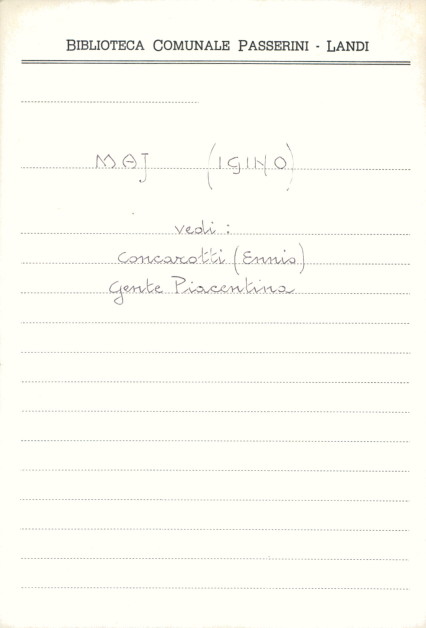 BIBLIOTECA COMUNALE PASSERINI - LANDI
MAJ (IGINO)
vedi :
Concarotti (Ennio)
Gente Piacentina